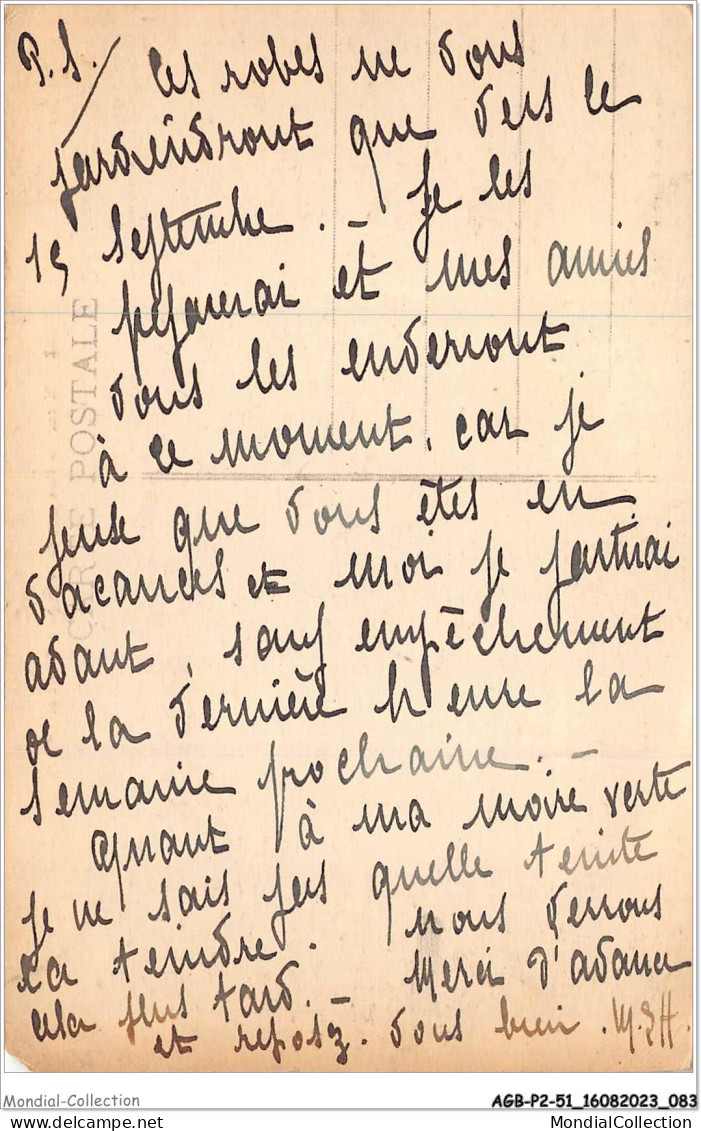 P.S./ Ces robes ne vous
parviendront que vers le
15 septembre. - Je les
préparerai et mes amies
vous les enverront
à ce moment, car je
pense que vous êtes en
vacances et moi je partirai
avant, sauf empêchement
de la dernière heure la
semaine prochaine. -
Quant à ma moire verte
je ne sais pas quelle teinte
la teindre. Nous verrons
cela plus tard. - Merci d'avance
et reposez vous bien. M.
CARTE POSTALE
Mondial-Collection
AGB-P2-51_16082023_083
MondialCollection